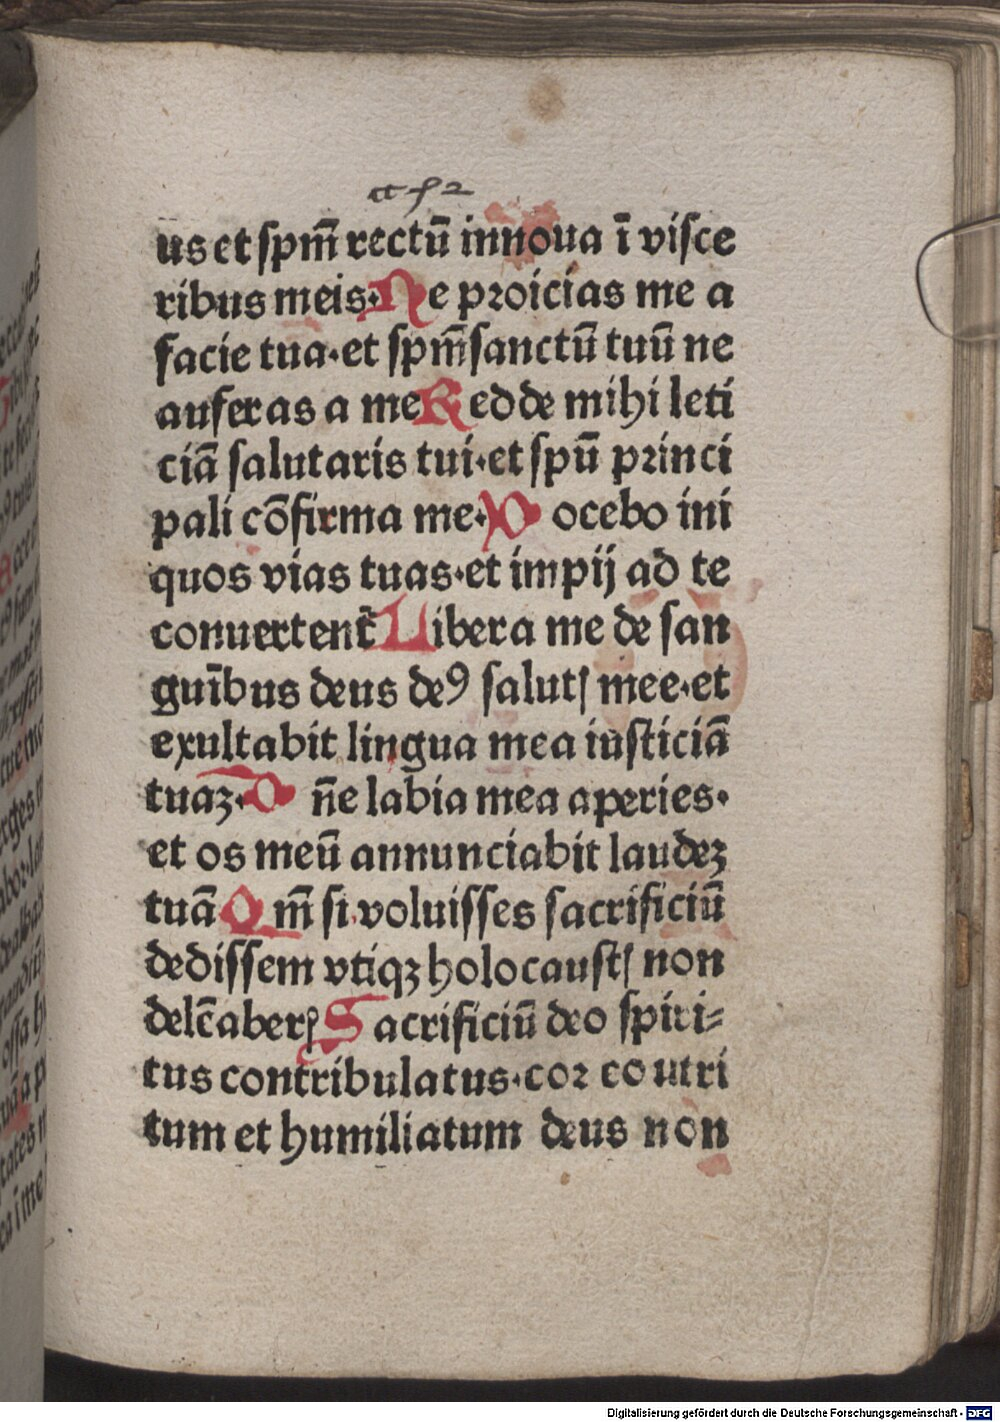 us et spm̄ rectū innoua ī visce
ribus meis·Ne proicias me a
facie tua·et spm̄ sanctū tuū ne
auferas a me Redde mihi leti
ciā salutaris tui·et spū princi
pali cōfirma me·Docebo ini
quos vias tuas·et impij ad te
conuertent᷑ Libera me de san
guībus deus deꝰ salutꝭ mee·et
exultabit lingua mea iusticiā
tuaꝫ·Dn̄e labia mea aperies·
et os meū annunciabit laudeꝫ
tuā Qm̄ si voluisses sacrificiū
dedissem vtiqꝫ holocaustꝭ non
delc̄aberꝭ Sacrificiū deo spiri⸗
tus contribulatus·cor coutri
tum et humiliatum deus non
Digitalisierung gefördert durch die Deutsche Forschungsgemeinschaft - DFG